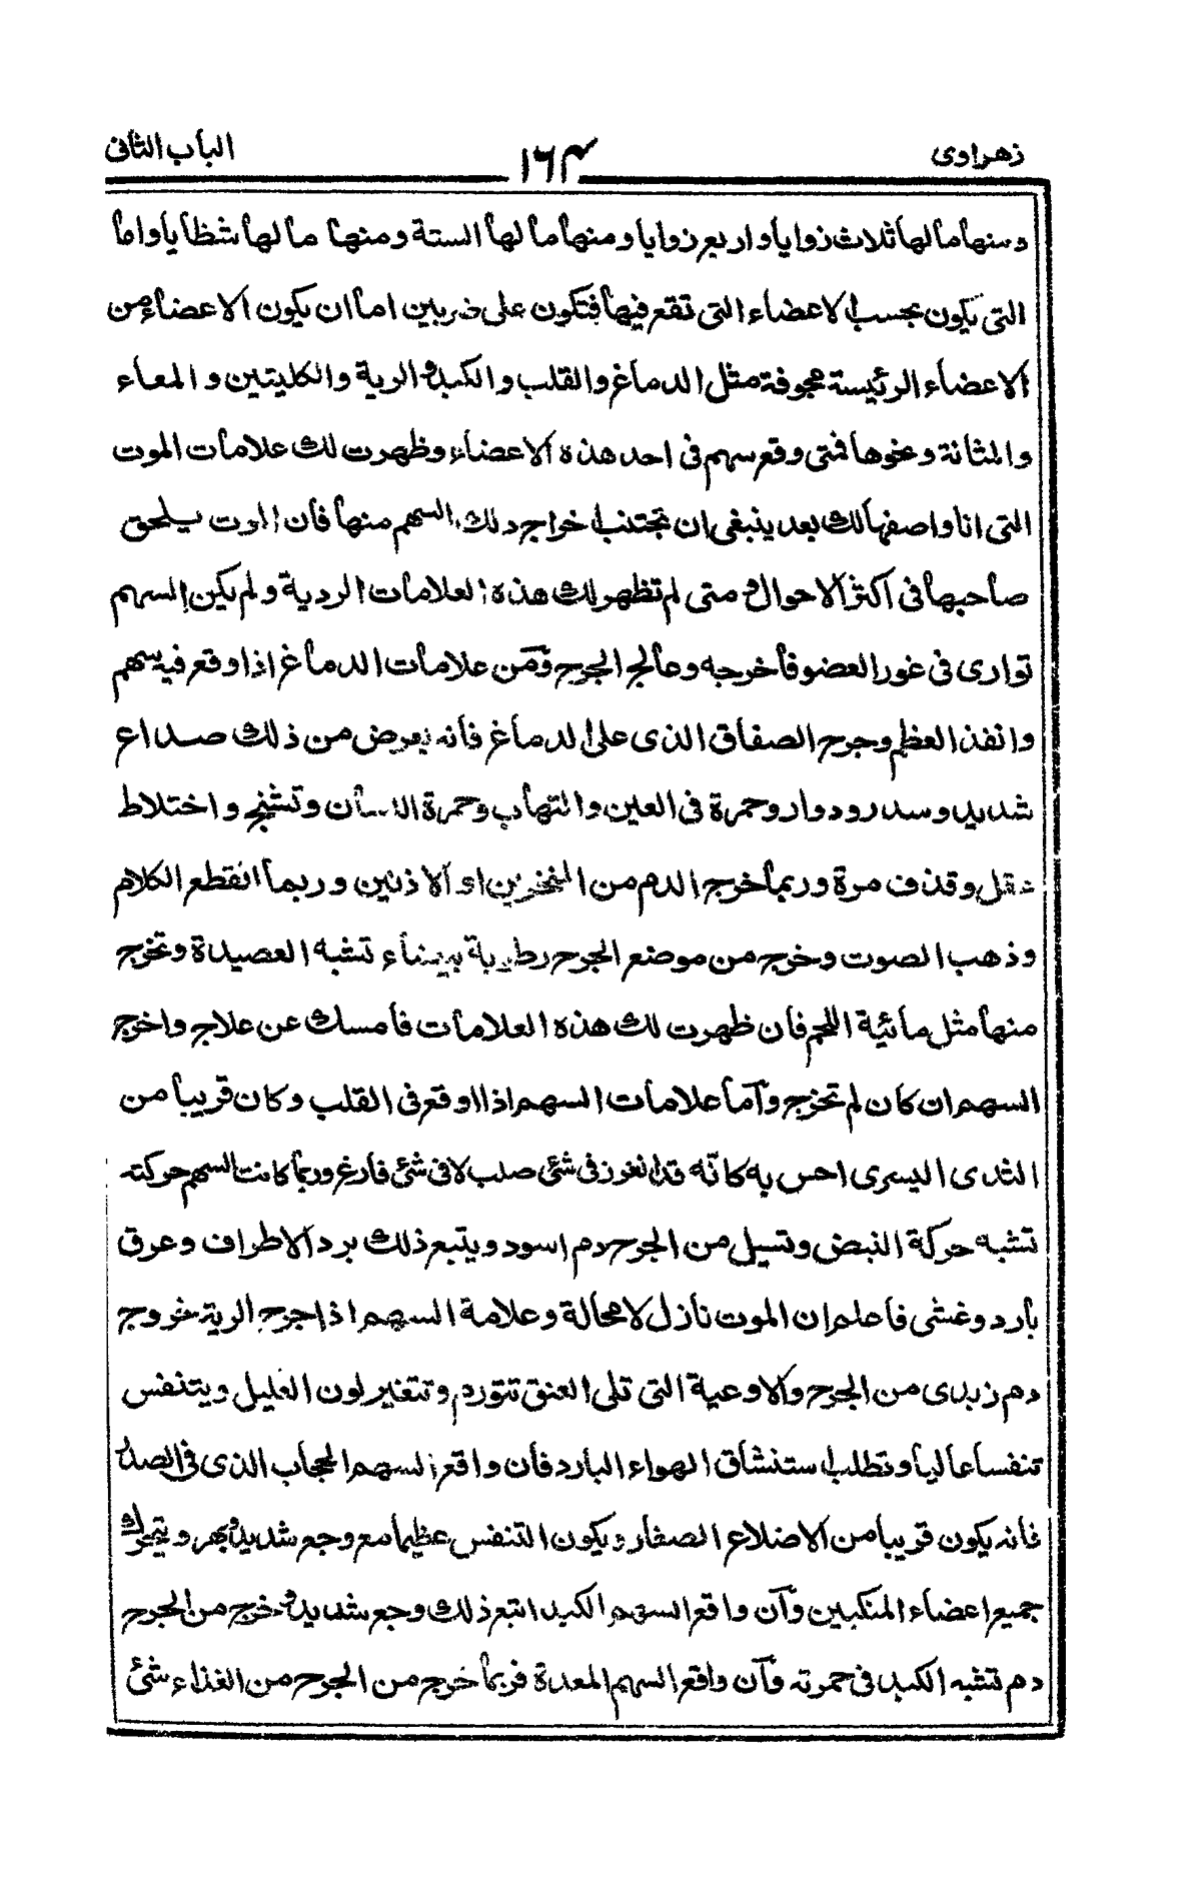 زهراوى ١٦٤ الباب الثانى
ومنها ما لها ثلاث زوايا واربع زوايا ومنها ما لها السنة ومنها ما لها شظايا واما
التى يكون بحسب الاعضاء التى تقع فيها فتكون على ضربين اما ان يكون الاعضاء من
الاعضاء الرئيسة مجوفة مثل الدماغ والقلب والكبد والرية والكليتين والمعاء
والمثانة ونحوها فمتى وقع سهم فى احد هذه الاعضاء وظهرت لك علامات الموت
التى انا واصفها لك بعد ينبغى ان تجتنب اخراج ذلك السهم منها فان الموت يلحق
صاحبها فى اكثر الاحوال و متى لم تظهر لك هذه العلامات الردية ولم يكن السهم
توارى فى غور العضو فاخرجه وعالج الجرح ومن علامات الدماغ اذا وقع فيه سهم
وانفذ العظم وجرح الصفاق الذى على الدماغ فانه يعرض من ذلك صداع
شديد وسدر ودوار وحمرة فى العين والتهاب وحمرة اللسان وتشنج واختلاط
عقل وقذف مرة وربما خرج الدم من المنخرين او الاذنين وربما انقطع الكلام
وذهب الصوت وخرج من موضع الجرح رطوبة بيضاء تشبه العصيدة وتخرج
منها مثل مائية اللحم فان ظهرت لك هذه العلامات فامسك عن علاج واخرج
السهم ان كان لم تخرج وآما علامات السهم اذا اوقع فى القلب وكان قريبا من
الثدى اليسرى احس به كانه قد انغوز فى شئ صلب لا فى شئ فارغ وربما كانت السهم حركته
تشبه حركة النبض وتسيل من الجرح دم اسود ويتبع ذلك برد الاطراف وعرق
بارد وغشى فاعلم ان الموت نازل لا محالة وعلامة السهم اذا جرح الرية خروج
دم زبدى من الجرح والاوعية التى تلى العنق تتورم وتتغير لون العليل ويتنفس
تنفسا عاليا وتطلب استنشاق الهواء البارد فان واقع السهم الحجاب الذى فى الصدر
فانه يكون قريبا من الاضلاع الصغار ويكون التنفس عظيما مع وجع شديد وبهر ويتحرك
جميع اعضاء المنكبين وآن واقع السهم الكبد اتبع ذلك وجع شديد وخرج من الجرح
دم تشبه الكبد فى حمرته وآن واقع السهم المعدة فربما خرج من الجرح من الغذاء شئ